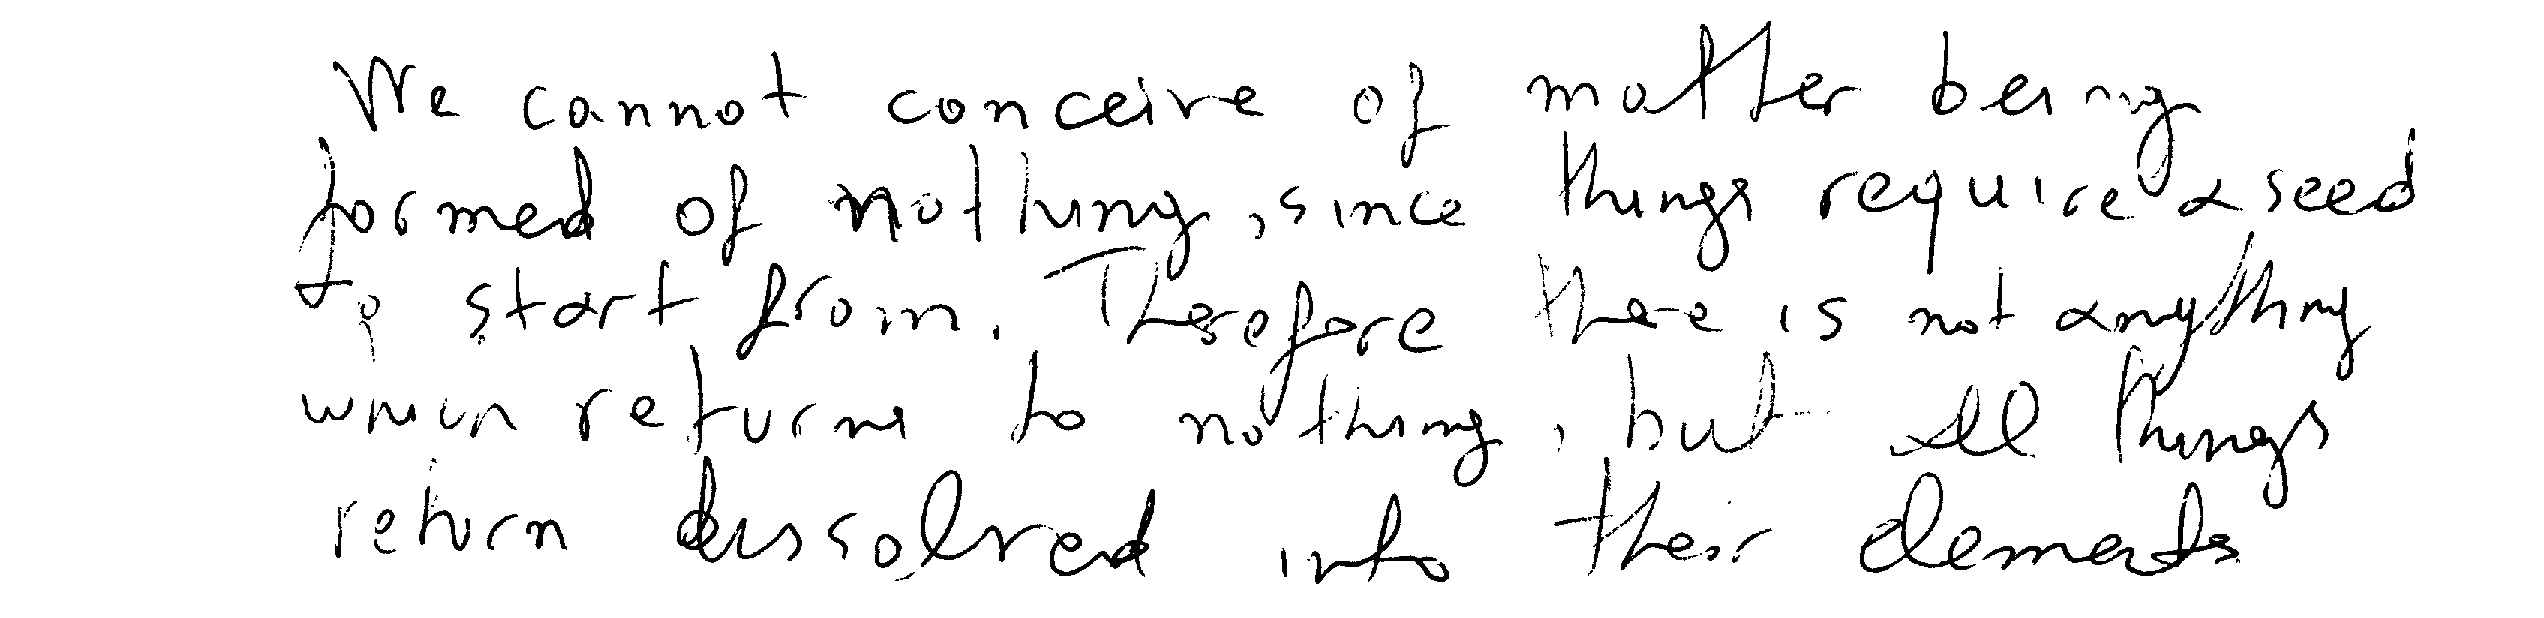 We cannot conceive of matter being
formed of nothing, since things require a seed
to start from. Therefore there is not anything
which returns to nothing, but all things
return dissolved into their elements